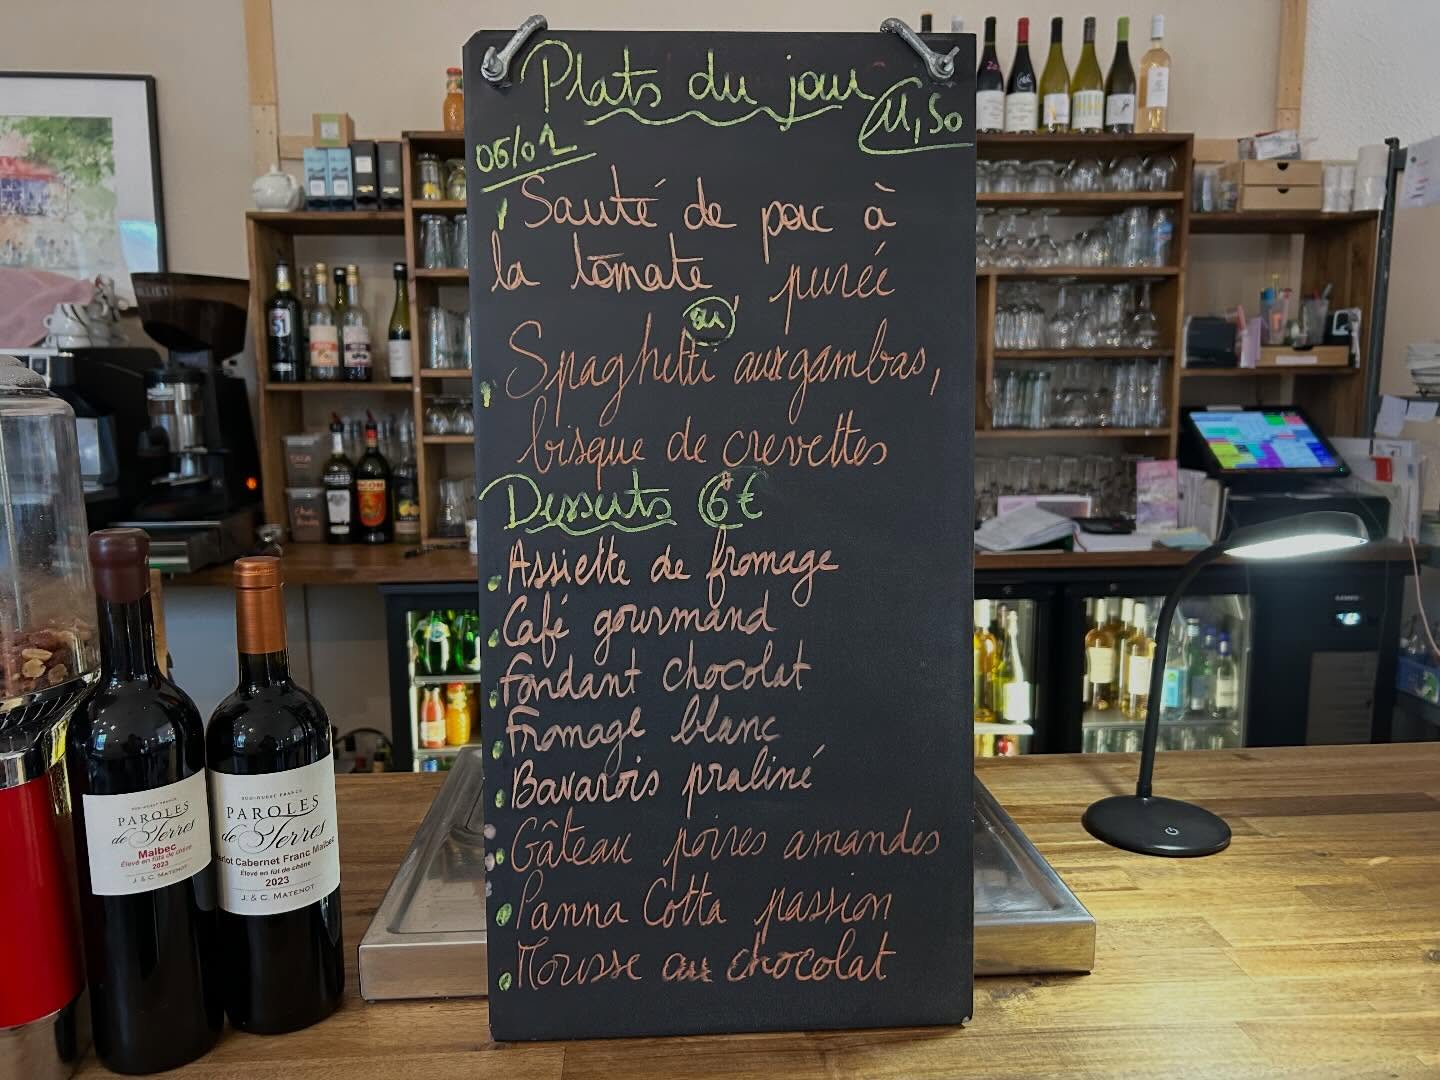 Plats du jour
11,50
06/01
Sauté de porc à
la tomate, purée
ou
Spaghetti aux gambas,
bisque de crevettes
Desserts 6€
Assiette de fromage
Café gourmand
Fondant chocolat
Fromage blanc
Bavarois praliné
Gâteau poires amandes
Panna Cotta passion
Mousse au chocolat
SUD-OUEST FRANCE
PAROLES
de Terres
Malbec
Élevé en fûts de chêne
2023
J. & C. MATENOT
SUD-OUEST FRANCE
PAROLES
de Terres
Cabernet Franc Malbec
Élevé en fût de chêne
2023
J. & C. MATENOT
51